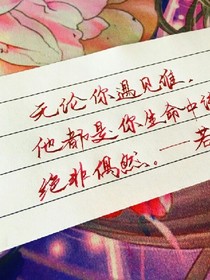 无论你遇见谁，
他都是你生命中该
绝非偶然。——若